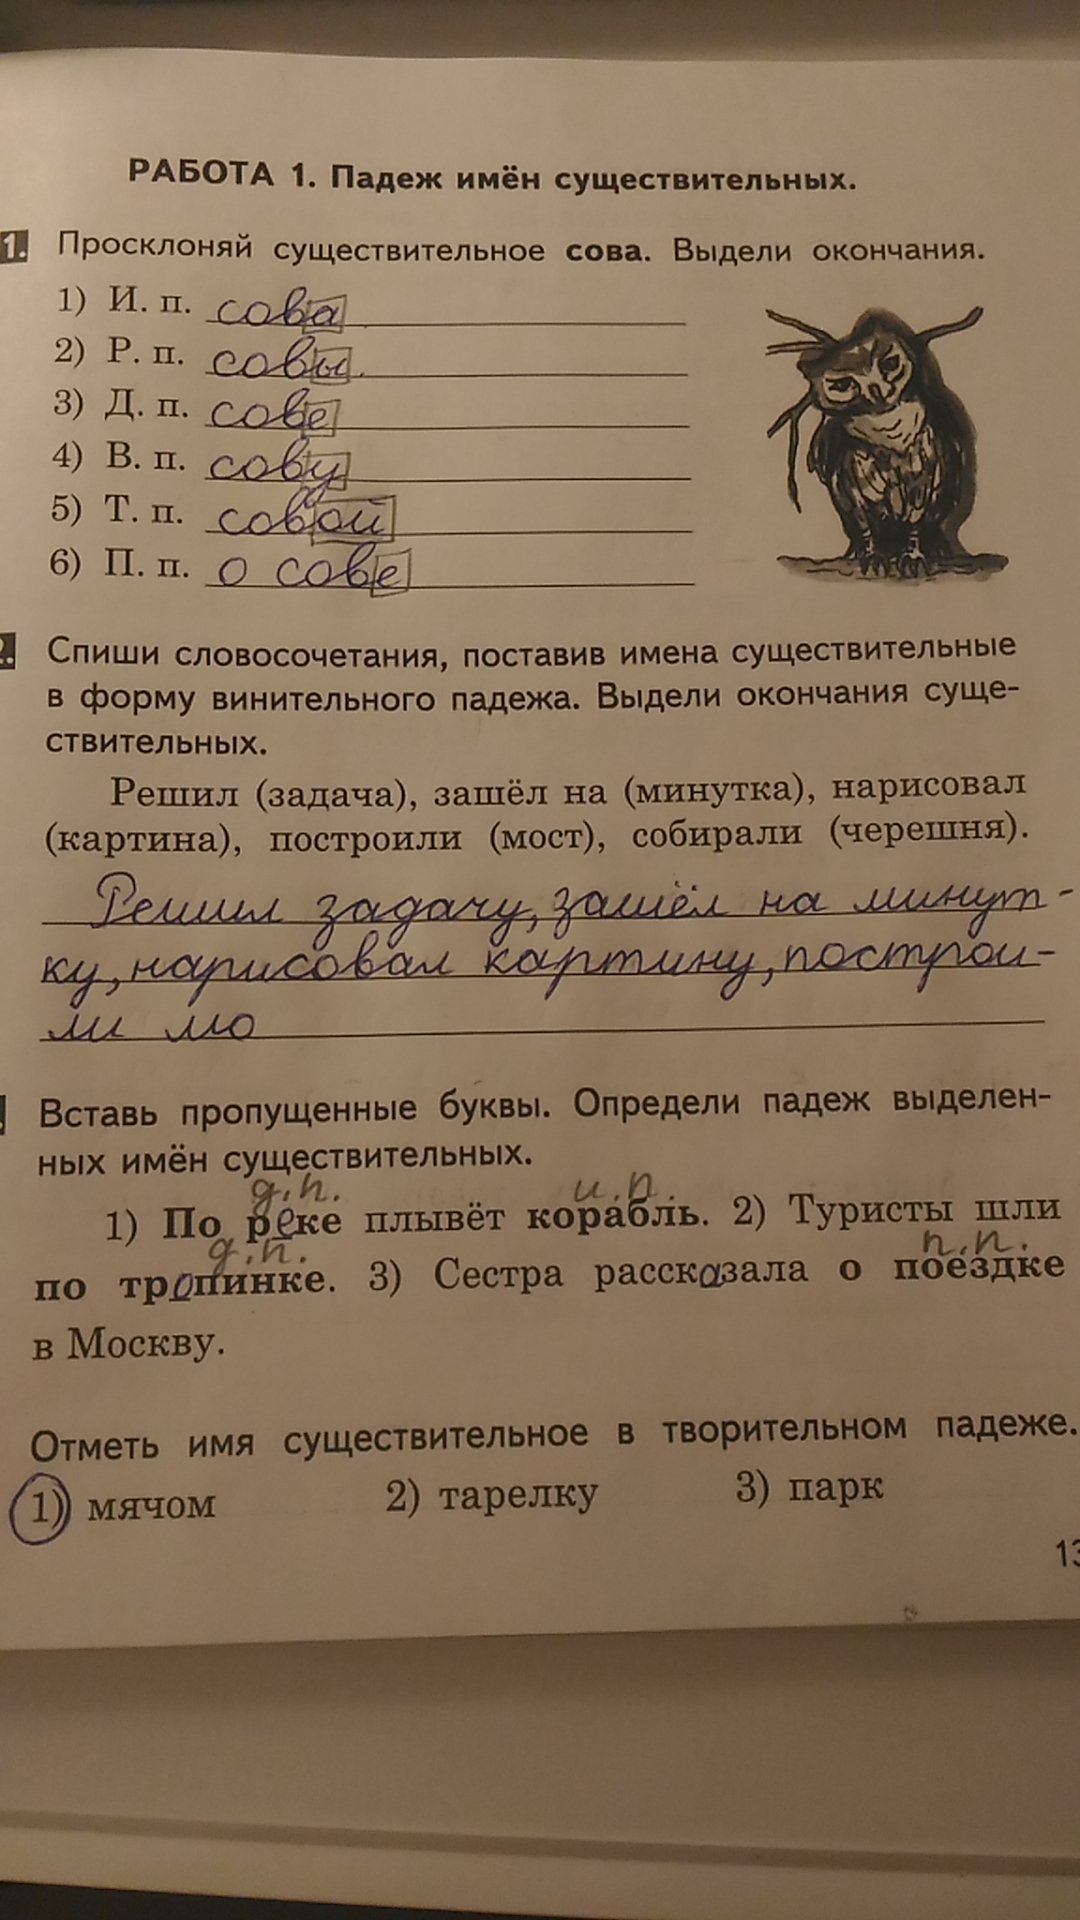 РАБОТА 1. Падеж имён существительных.
1. Просклоняй существительное сова. Выдели окончания.
1) И. п. сова
2) Р. п. совы.
3) Д. п. сове
4) В. п. сову
5) Т. п. совой
6) П. п. о сове
2. Спиши словосочетания, поставив имена существительные
в форму винительного падежа. Выдели окончания суще-
ствительных.
Решил (задача), зашёл на (минутка), нарисовал
(картина), построили (мост), собирали (черешня).
Решил задачу, зашёл на минут-
ку, нарисовал картину, построи-
ли мо
Вставь пропущенные буквы. Определи падеж выделен-
ных имён существительных.
д.п. и.п.
1) По реке плывёт корабль. 2) Туристы шли
д.п. п.п.
по тропинке. 3) Сестра рассказала о поездке
в Москву.
Отметь имя существительное в творительном падеже.
1) мячом 2) тарелку 3) парк
13